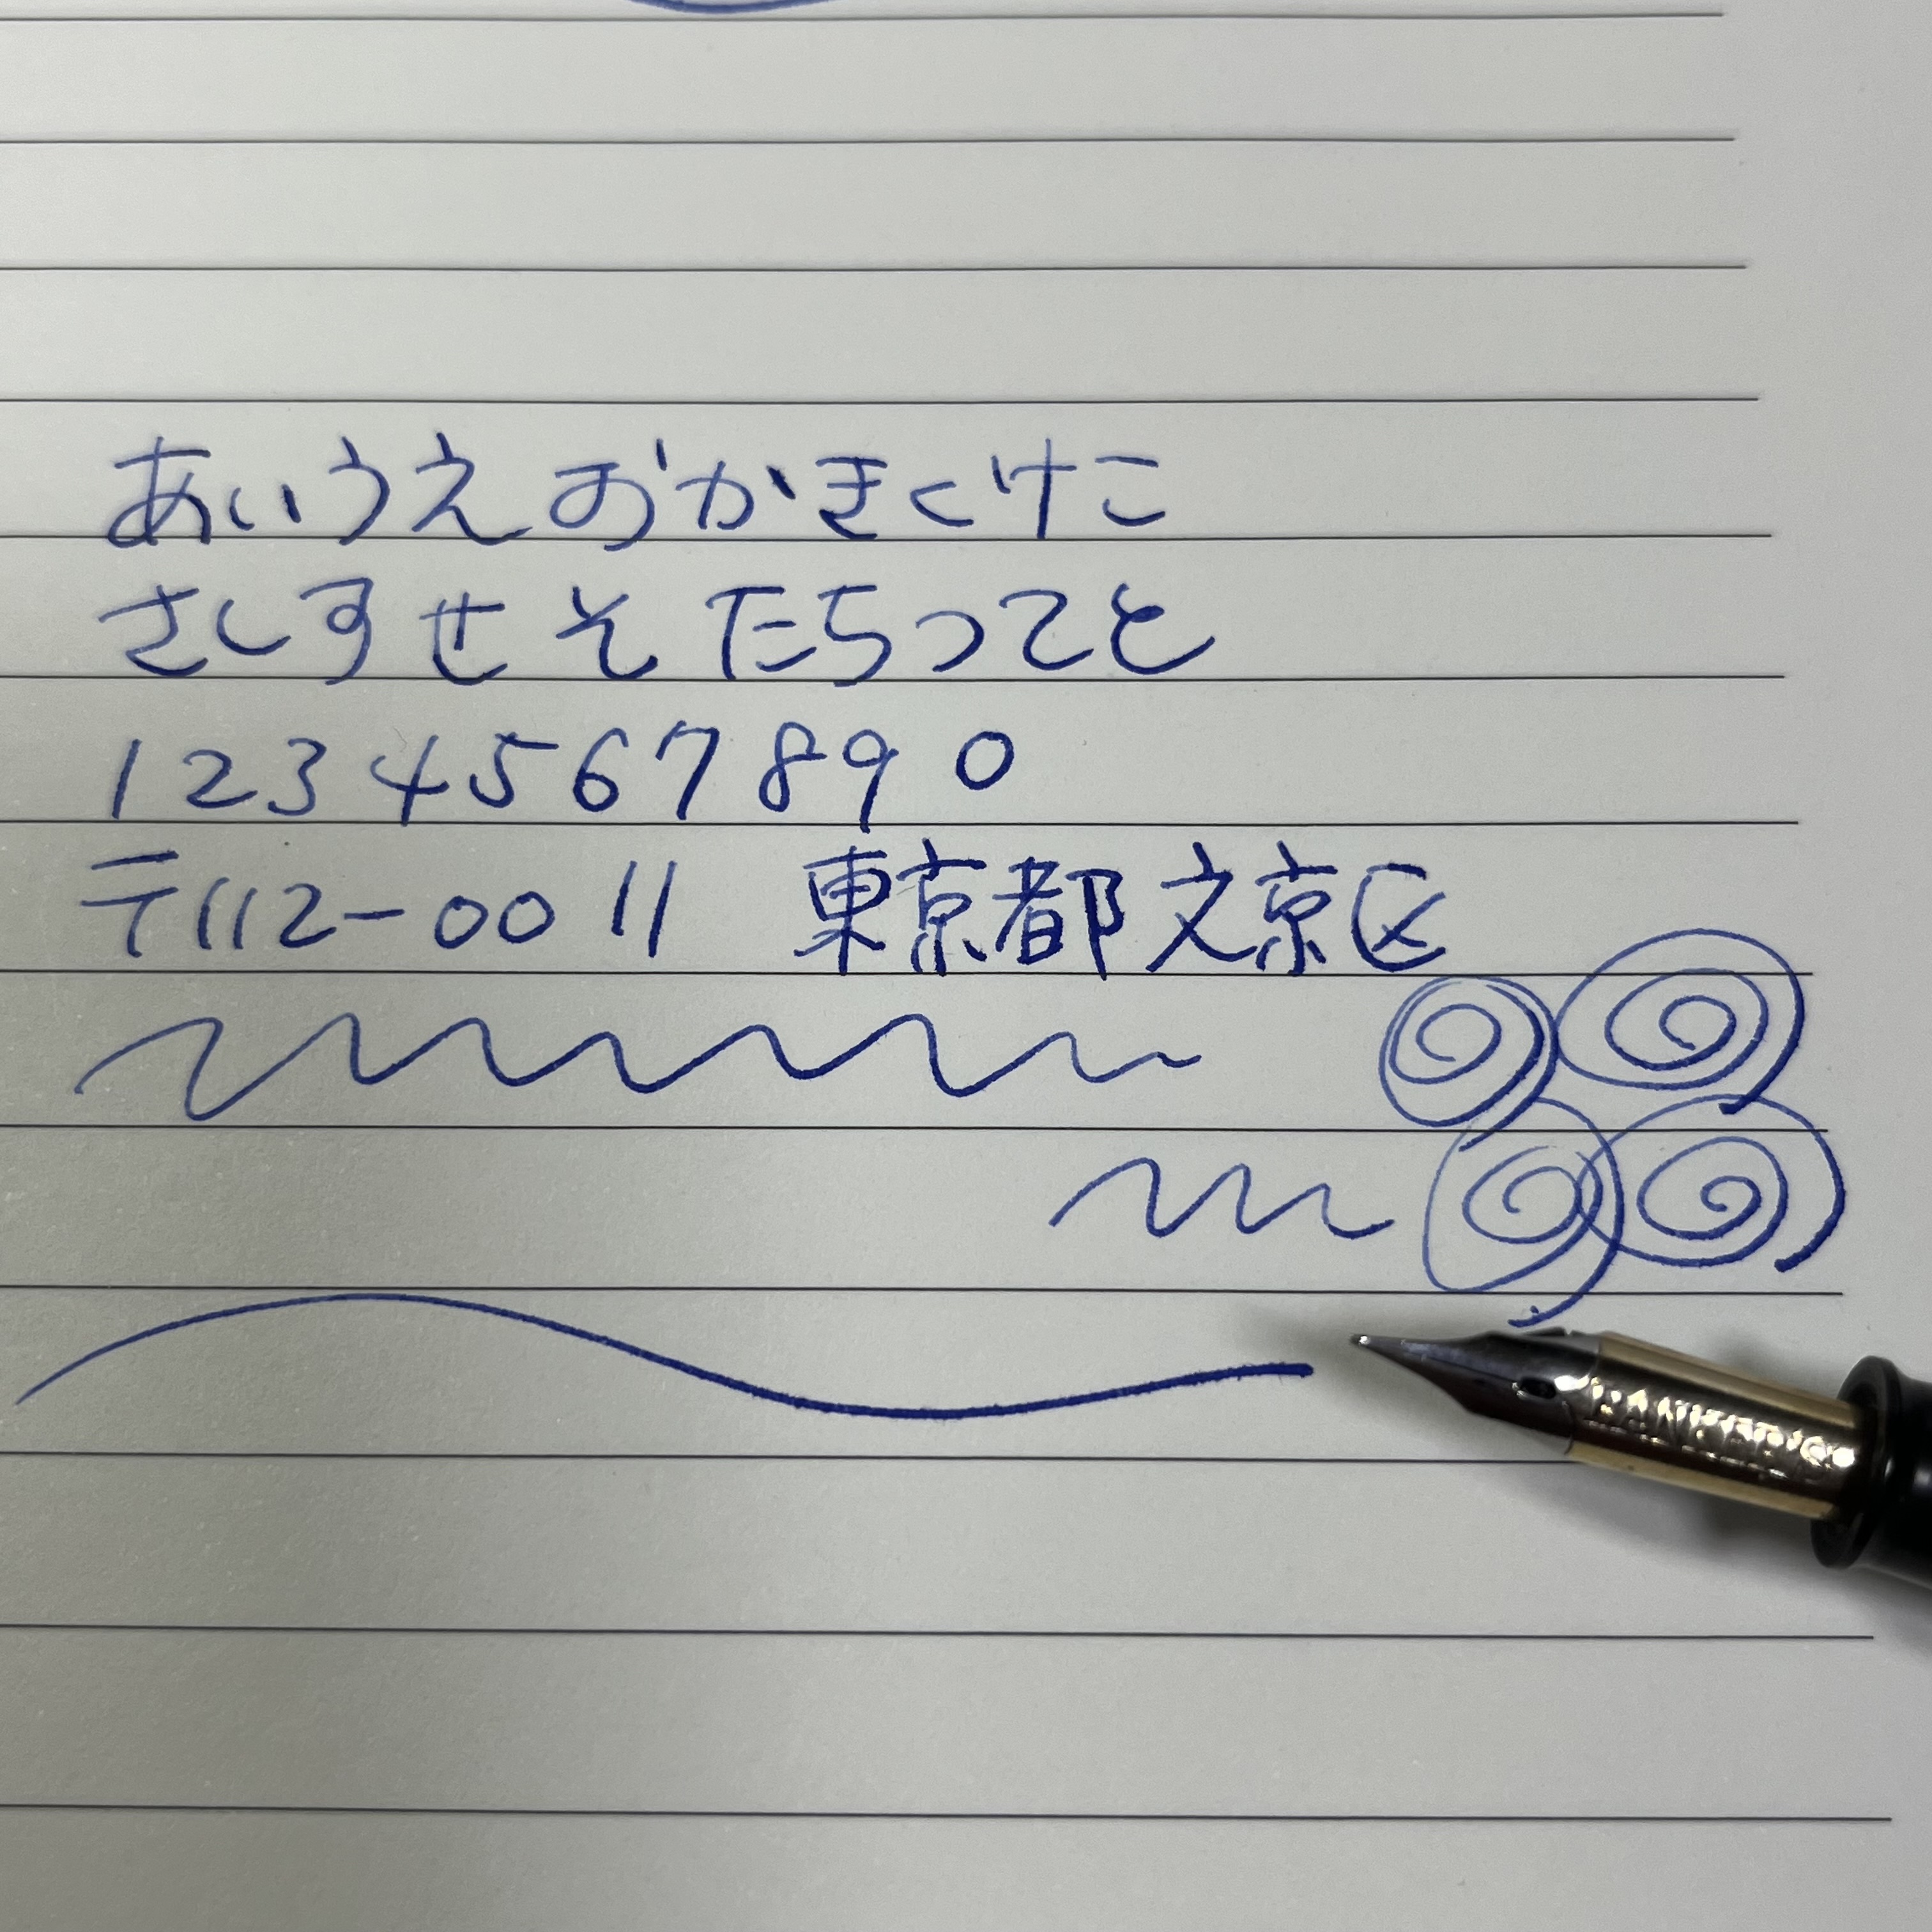 あいうえおかきくけこ
さしすせそたちつてと
1234567890
〒112-0011 東京都文京区
BANKER'S